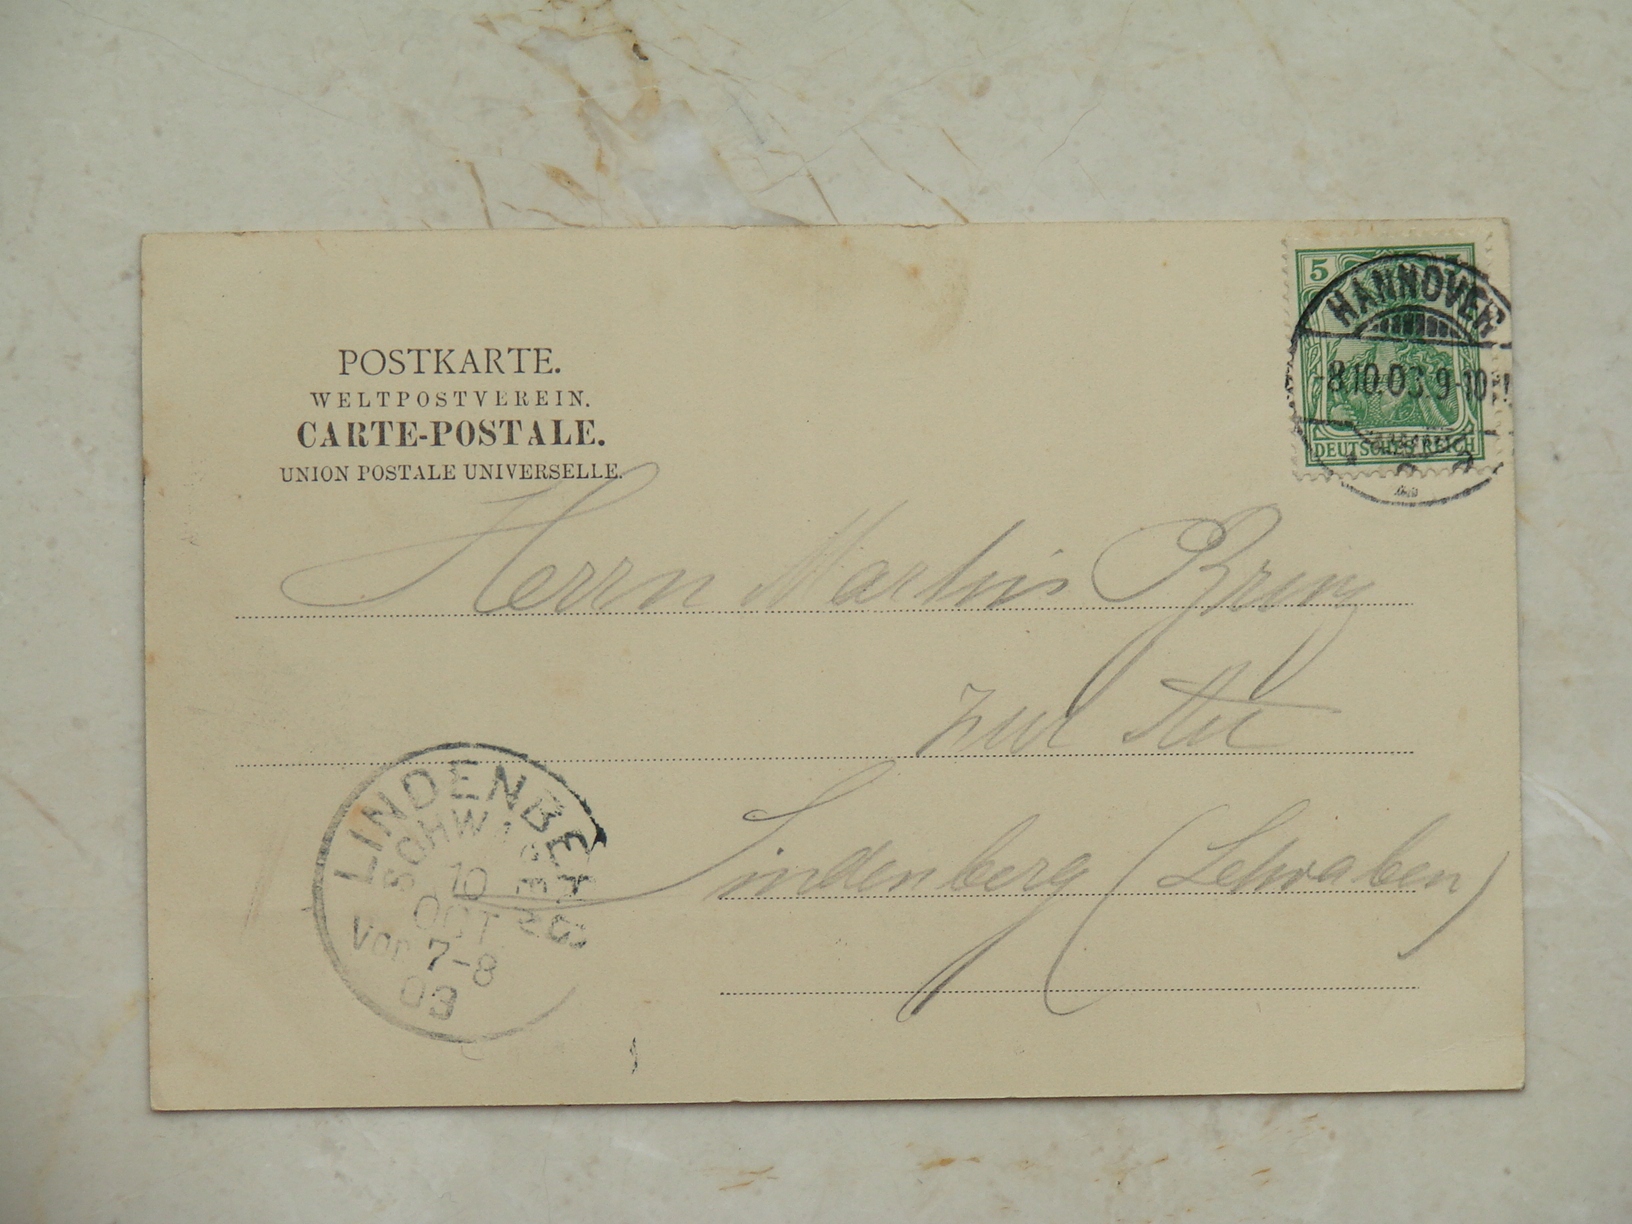 POSTKARTE.
WELTPOSTVEREIN.
CARTE-POSTALE.
UNION POSTALE UNIVERSELLE.
5
HANNOVER
-8.10.03.9-10
DEUTSCHES REICH
Herrn Martin
zur
Lindenberg (Schwaben)
LINDENBERG
SCHWABEN
10
OCT
Vor 7-8
03